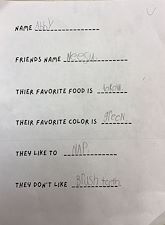 NAME Abby
FRIENDS NAME
THIER FAVORITE FOOD IS
THEIR FAVORITE COLOR IS green
THEY LIKE TO NAP
THEY DON'T LIKE Brush teeth